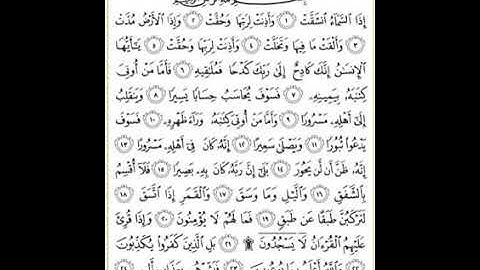 إِذَا ٱلسَّمَآءُ ٱنشَقَّتْ ١ وَأَذِنَتْ لِرَبِّهَا وَحُقَّتْ ٢ وَإِذَا ٱلْأَرْضُ مُدَّتْ
٣ وَأَلْقَتْ مَا فِيهَا وَتَخَلَّتْ ٤ وَأَذِنَتْ لِرَبِّهَا وَحُقَّتْ ٥ يَـٰٓأَيُّهَا
ٱلْإِنسَـٰنُ إِنَّكَ كَادِحٌ إِلَىٰ رَبِّكَ كَدْحًا فَمُلَـٰقِيهِ ٦ فَأَمَّا مَنْ أُوتِىَ
كِتَـٰبَهُۥ بِيَمِينِهِۦ ٧ فَسَوْفَ يُحَاسَبُ حِسَابًا يَسِيرًا ٨ وَيَنقَلِبُ
إِلَىٰٓ أَهْلِهِۦ مَسْرُورًا ٩ وَأَمَّا مَنْ أُوتِىَ كِتَـٰبَهُۥ وَرَآءَ ظَهْرِهِۦ ١٠ فَسَوْفَ
يَدْعُوا۟ ثُبُورًا ١١ وَيَصْلَىٰ سَعِيرًا ١٢ إِنَّهُۥ كَانَ فِىٓ أَهْلِهِۦ مَسْرُورًا ١٣
إِنَّهُۥ ظَنَّ أَن لَّن يَحُورَ ١٤ بَلَىٰٓ إِنَّ رَبَّهُۥ كَانَ بِهِۦ بَصِيرًا ١٥ فَلَآ أُقْسِمُ
بِٱلشَّفَقِ ١٦ وَٱلَّيْلِ وَمَا وَسَقَ ١٧ وَٱلْقَمَرِ إِذَا ٱتَّسَقَ ١٨
لَتَرْكَبُنَّ طَبَقًا عَن طَبَقٍ ١٩ فَمَا لَهُمْ لَا يُؤْمِنُونَ ٢٠ وَإِذَا قُرِئَ
عَلَيْهِمُ ٱلْقُرْءَانُ لَا يَسْجُدُونَ ۩ ٢١ بَلِ ٱلَّذِينَ كَفَرُوا۟ يُكَذِّبُونَ